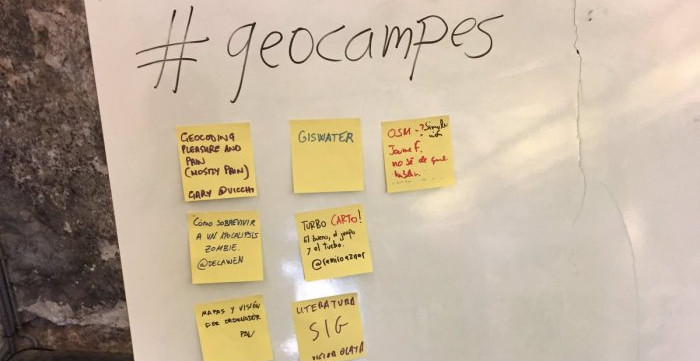 #geocampes
GEOCODING
PLEASURE AND
PAIN
(MOSTLY PAIN)
GARY @VICCHI
GISWATER
OSM -
Jaume F.
no sé de que
hablar.
CÓMO SOBREVIVIR
A UN APOCALIPSIS
ZOMBIE.
@DELAWEN
TURBO CARTO!
El bueno, el guapo
y el turbo.
MAPAS Y VISIÓN
POR ORDENADOR
LITERATURA
SIG
VICTOR OLAYA